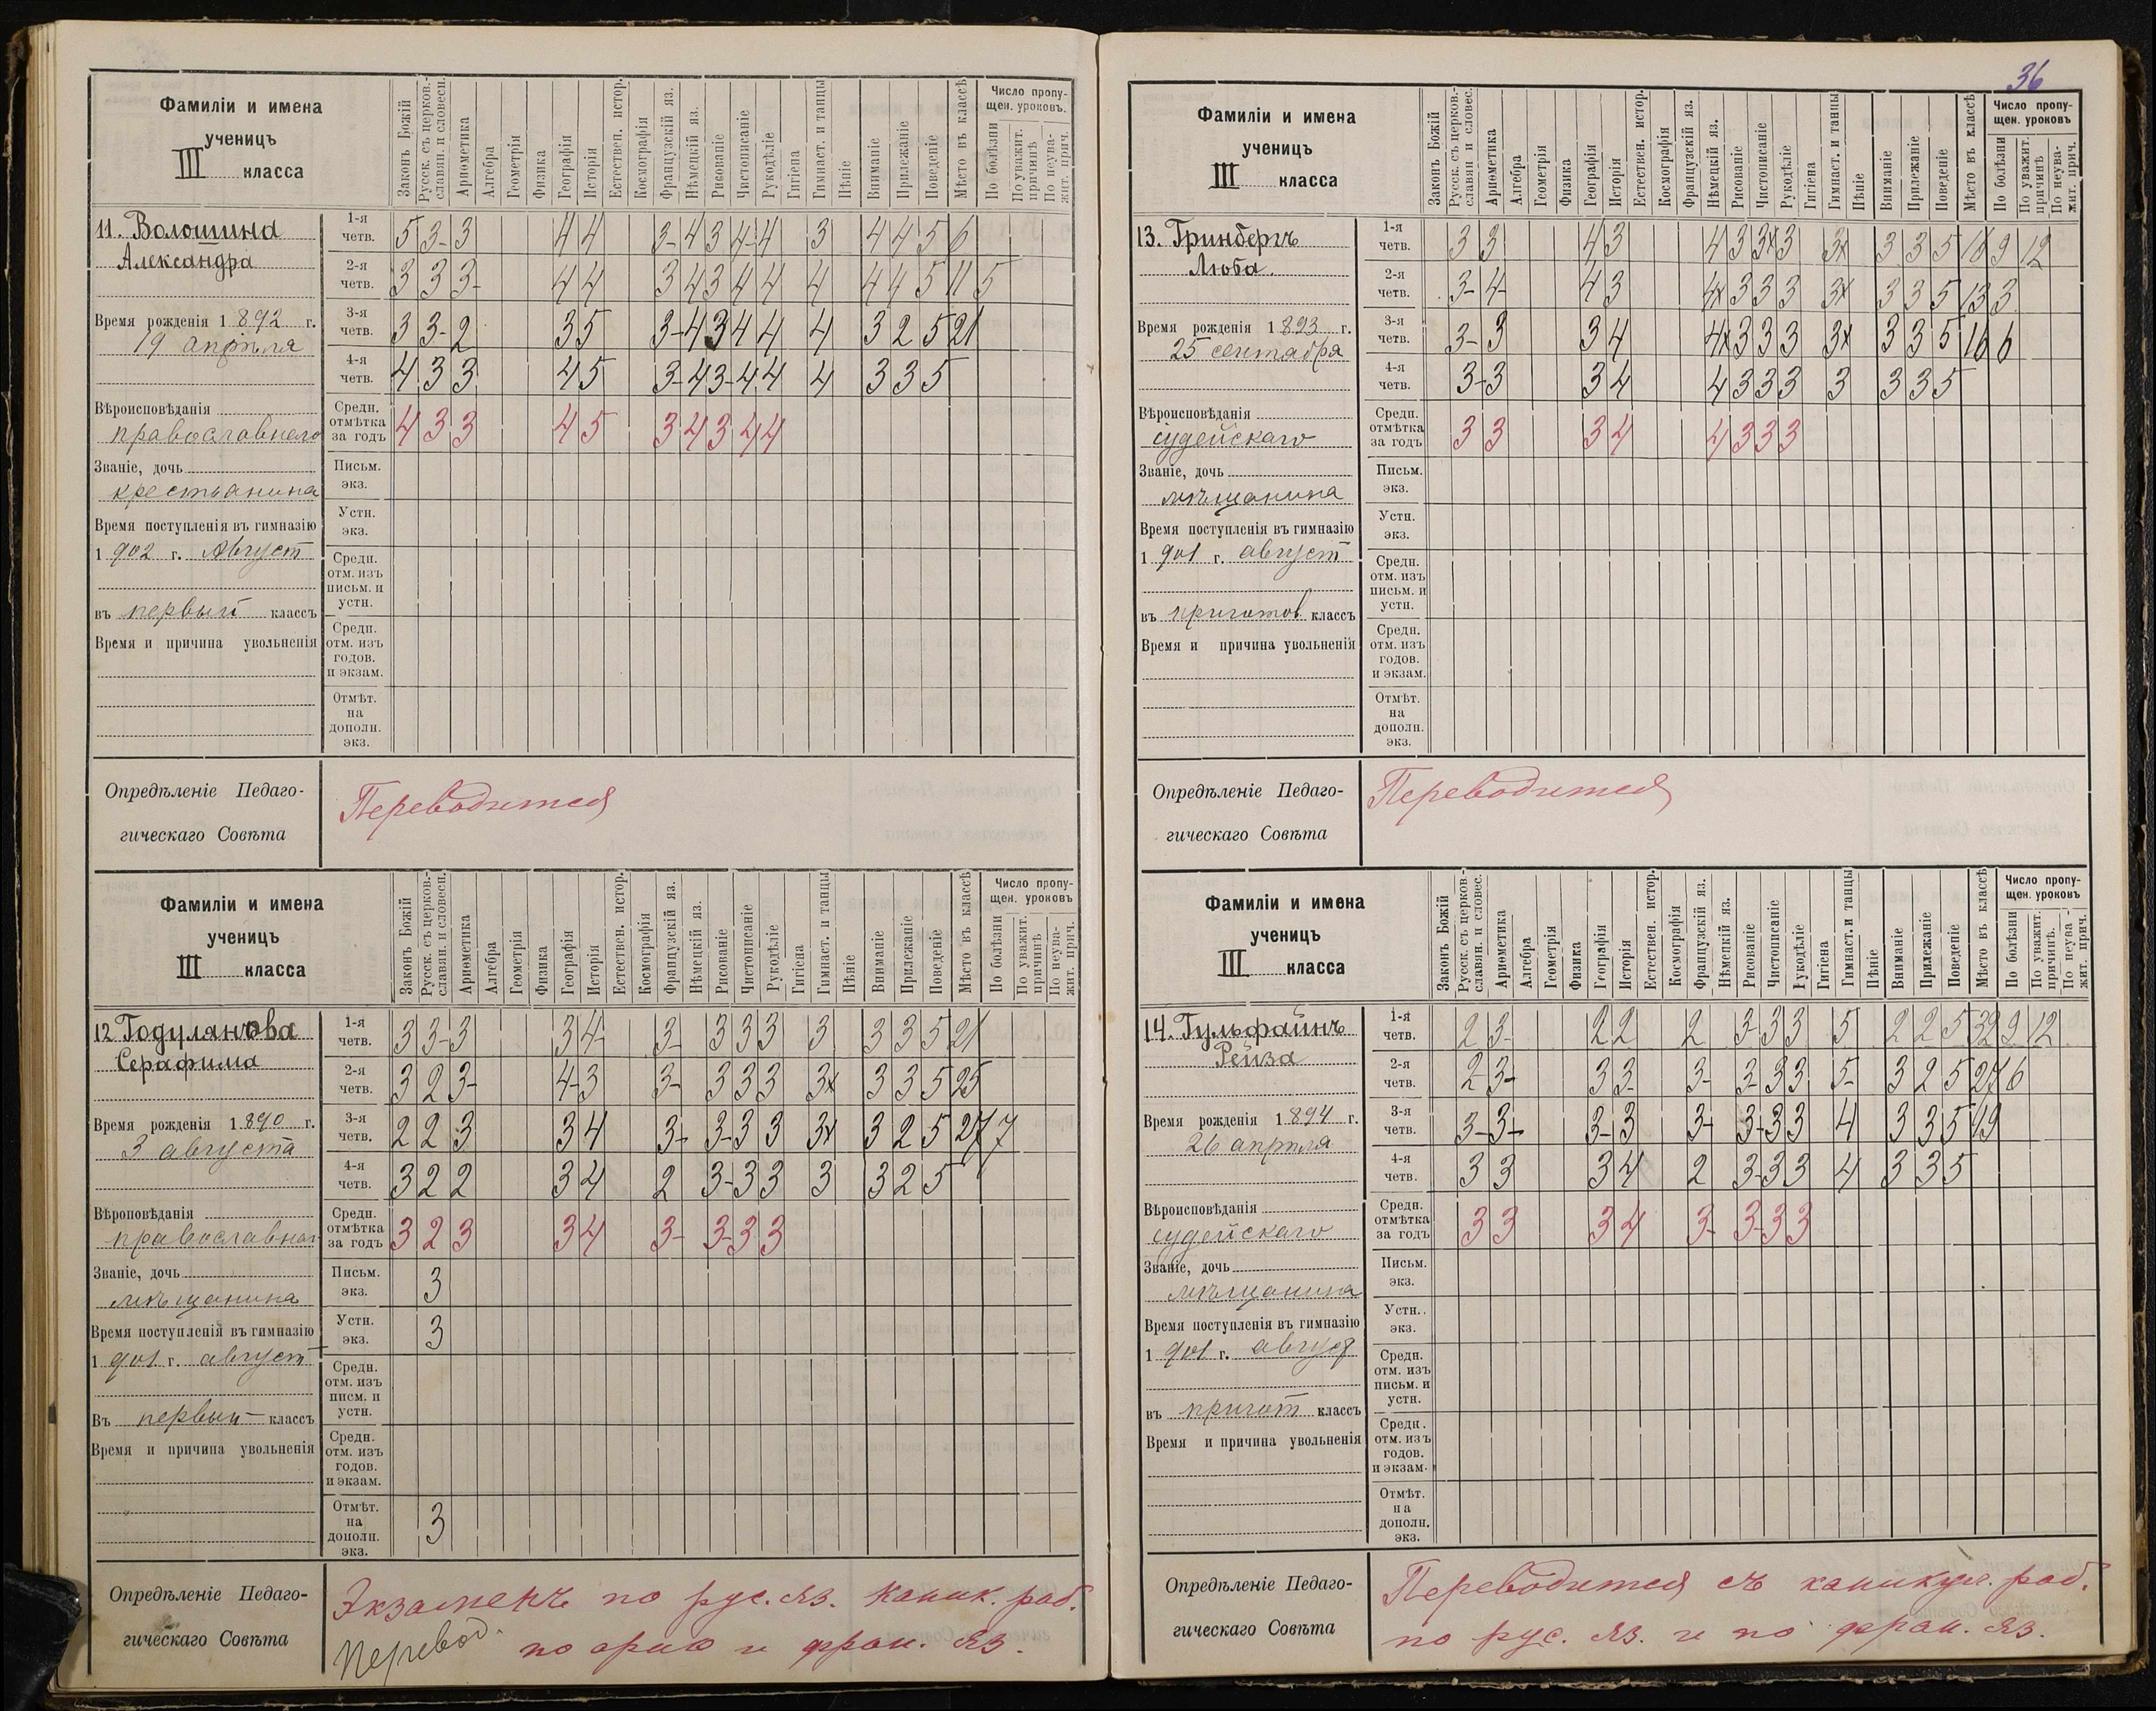 36
Фамиліи и имена
ученицъ
III класса
Законъ Божій
Русск. съ церков.-
славян. и словесн.
Ариѳметика
Алгебра
Геометрія
Физика
Географія
Исторія
Естествен. истор.
Космографія
Французскій яз.
Нѣмецкій яз.
Рисованіе
Чистописаніе
Рукодѣліе
Гигіена
Гимнаст. и танцы
Пѣніе
Вниманіе
Прилежаніе
Поведеніе
Мѣсто въ классѣ
Число пропу-
щен. уроковъ.
По болѣзни
По уважит.
причинѣ
По неува-
жит. прич.
11. Волошина
Александра
Время рожденія 1892 г.
19 апрѣля
Вѣроисповѣданія
православнаго
Званіе, дочь
крестьянина
Время поступленія въ гимназію
1902 г. Август
въ первый классъ
Время и причина увольненія
1-я четв. 5 3- 3 4 4 3- 4 3 4- 4 3 4 4 5 6
2-я четв. 3 3 3- 4 4 3 4 3 4 4 4 4 4 5 11 5
3-я четв. 3 3- 2 3 5 3- 4 3 4 4 4 3 2 5 21
4-я четв. 4 3 3 4 5 3- 4 3- 4 4 4 3 3 5
Средн. отмѣтка за годъ 4 3 3 4 5 3 4 3 4 4
Письм. экз.
Устн. экз.
Средн. отм. изъ письм. и устн.
Средн. отм. изъ годов. и экзам.
Отмѣт. на дополн. экз.
Опредѣленіе Педаго-
гическаго Совѣта
Переводится
Фамиліи и имена
ученицъ
III класса
Законъ Божій
Русск. съ церков.-
славян. и словесн.
Ариѳметика
Алгебра
Геометрія
Физика
Географія
Исторія
Естествен. истор.
Космографія
Французскій яз.
Нѣмецкій яз.
Рисованіе
Чистописаніе
Рукодѣліе
Гигіена
Гимнаст. и танцы
Пѣніе
Вниманіе
Прилежаніе
Поведеніе
Мѣсто въ классѣ
Число пропу-
щен. уроковъ
По болѣзни
По уважит.
причинѣ
По неува-
жит. прич.
12 Годулянова
Серафима
Время рожденія 1890 г.
3 августа
Вѣроповѣданія
Званіе, дочь
мѣщанина
Время поступленія въ гимназію
1901 г. август
Въ первый классъ
Время и причина увольненія
1-я четв. 3 3- 3 3 4- 3- 3 3 3 3 3 3 5 21
2-я четв. 3 2 3- 4- 3 3- 3 3 3 3x 3 3 5 25
3-я четв. 2 2 3 3 4 3- 3- 3 3 3x 3 2 5 27 7
4-я четв. 3 2 2 3 4 2 3- 3 3 3 3 2 5
Средн. отмѣтка за годъ 3 2 3 3 4 3- 3- 3 3
Письм. экз. 3
Устн. экз. 3
Средн. отм. изъ писм. и устн.
Средн. отм. изъ годов. и экзам.
Отмѣт. на дополн. экз. 3
Опредѣленіе Педаго-
гическаго Совѣта
Экзаменъ по рус. яз. каник. раб.
Перевод. по ариѳ и фран. яз.
Фамиліи и имена
ученицъ
III класса
Законъ Божій
Русск. съ церков.-
славян и словес.
Ариѳметика
Алгебра
Геометрія
Физика
Географія
Исторія
Естествен. истор.
Космографія
Французскій яз.
Нѣмецкій яз.
Рисованіе
Чистописаніе
Рукодѣліе
Гигіена
Гимнаст. и танцы
Пѣніе
Вниманіе
Прилежаніе
Поведеніе
Мѣсто въ классѣ
Число пропу-
щен. уроковъ
По болѣзни
По уважит.
причинѣ
По неува-
жит. прич.
13. Гринбергъ
Люба
Время рожденія 1893 г.
25 сентября
Вѣроисповѣданія
іудейскаго
Званіе, дочь
мѣщанина
Время поступленія въ гимназію
1901 г. август
въ приготов классъ
Время и причина увольненія
1-я четв. 3 3 4 3 4 3 3x 3 3x 3 3 5 18 9 12
2-я четв. 3- 4- 4 3 4x 3 3 3 3x 3 3 5 13 3
3-я четв. 3- 3 3 4 4x 3 3 3 3x 3 3 5 16 6
4-я четв. 3- 3 3 4 4 3 3 3 3 3 3 5
Средн. отмѣтка за годъ 3 3 3 4 4 3 3 3
Письм. экз.
Устн. экз.
Средн. отм. изъ письм. и устн.
Средн. отм. изъ годов. и экзам.
Отмѣт. на дополн. экз.
Опредѣленіе Педаго-
гическаго Совѣта
Переводится
Фамиліи и имена
ученицъ
III класса
Законъ Божій
Русск. съ церков.-
славян. и словес.
Ариѳметика
Алгебра
Геометрія
Физика
Географія
Исторія
Естествен. истор.
Космографія
Французскій яз.
Нѣмецкій яз.
Рисованіе
Чистописаніе
Рукодѣліе
Гигіена
Гимнаст. и танцы
Пѣніе
Вниманіе
Прилежаніе
Поведеніе
Мѣсто въ классѣ
Число пропу-
щен. уроковъ
По болѣзни
По уважит.
причинѣ.
По неува -
жит. прич.
14. Гульфайнъ
Рейза
Время рожденія 1894 г.
26 апрѣля
Вѣроисповѣданія
іудейскаго
Званіе, дочь
мѣщанина
Время поступленія въ гимназію
1901 г. август
въ пригот классъ
Время и причина увольненія
1-я четв. 2 3- 2 2 2 3- 3 3 5 2 2 5 32 9 12
2-я четв. 2 3- 3 3- 3- 3- 3 3 5- 3 2 5 27 6
3-я четв. 3- 3- 3- 3 3- 3- 3 3 4 3 3 5 19
4-я четв. 3 3 3 4 2 3- 3 3 4 3 3 5
Средн. отмѣтка за годъ 3 3 3 4 3- 3- 3 3
Письм. экз.
Устн. экз.
Средн. отм. изъ письм. и устн.
Средн. отм. изъ годов. и экзам.
Отмѣт. на дополн. экз.
Опредѣленіе Педаго-
гическаго Совѣта
Переводится съ каникул. раб.
по рус. яз. и по фран. яз.